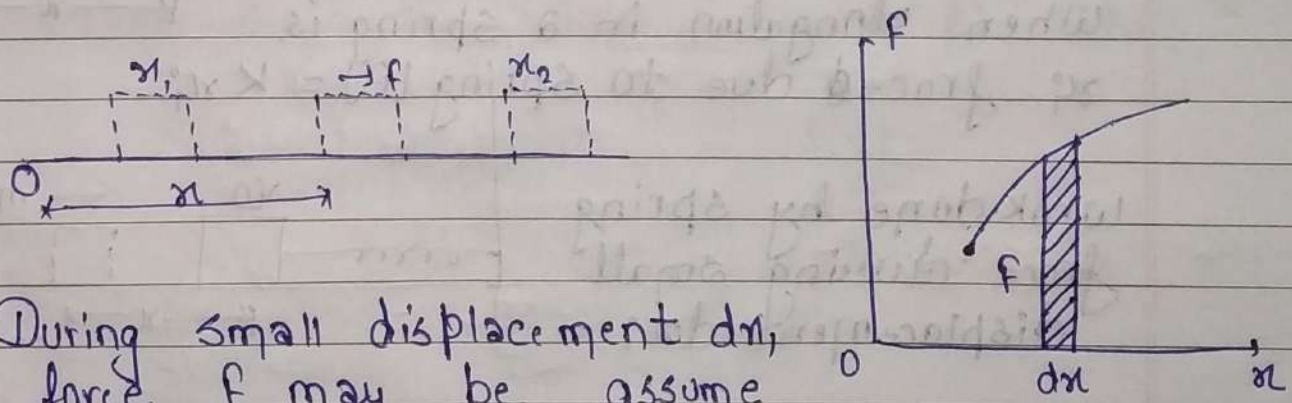 f
x₁ → f x₂
O
x
f
During small displacement dx,
O dx x
force f may be assume